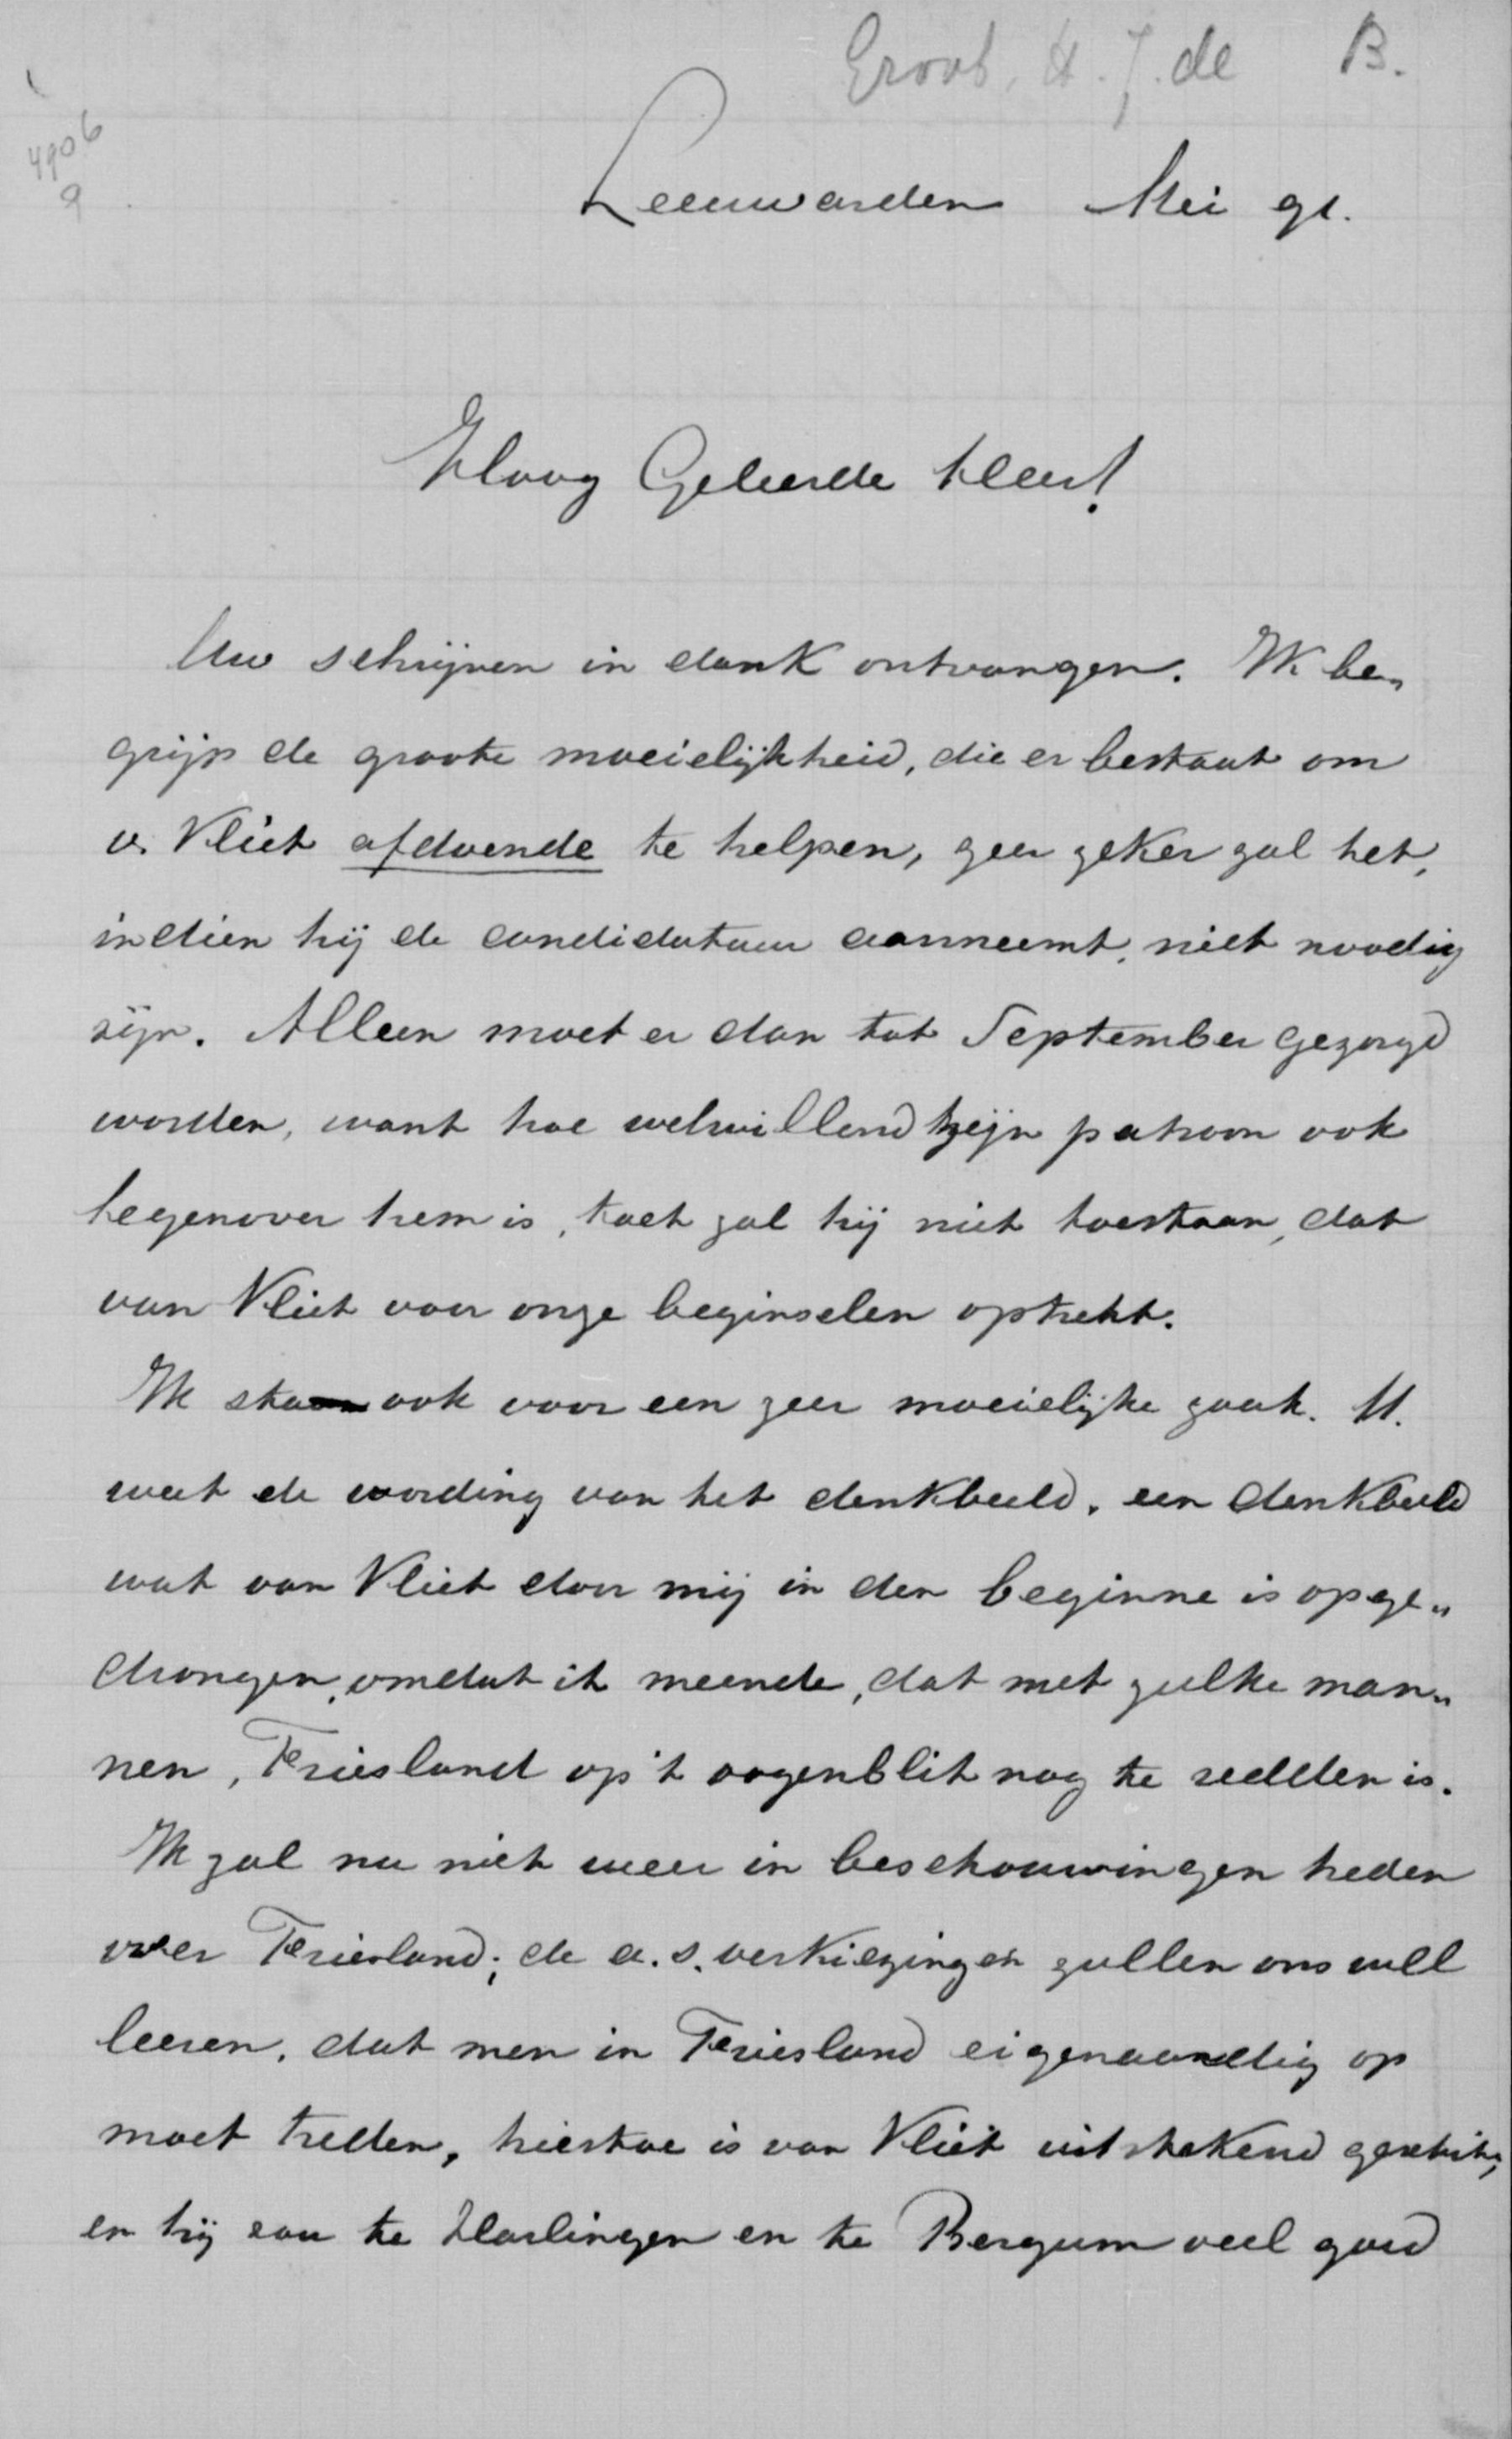 Groot, H. J. de B.
4906
9
Leeuwarden Mei 91.
Hoog Geleerde Heer!
Uw schrijven in dank ontvangen. Ik be„
grijp de groote moeielijkheid, die er bestaat om
v. Vliet afdoende te helpen, zeer zeker zal het,
indien hij de candidatuur aanneemt, niet noodig
zijn. Alleen moet er dan tot September gezorgd
worden, want hoe welwillend zijn patroon ook
tegenover hem is, toch zal hij niet toestaan, dat
van Vliet voor onze beginselen optrekt.
Ik sta ook voor een zeer moeielijke zaak. U.
weet de wording van het denkbeeld. een denkbeeld
wat van Vliet door mij in den beginne is opge„
drongen, omdat ik meende, dat met zulke man„
nen, Friesland op 't oogenblik nog te redden is.
Ik zal nu niet weer in beschouwingen treden
over Friesland; de a. s. verkiezingen zullen ons well
leeren, dat men in Friesland eigenaardig op
moet treden, hiertoe is van Vliet uitstekend geschikt,
en hij zou te Harlingen en te Bergum veel goed